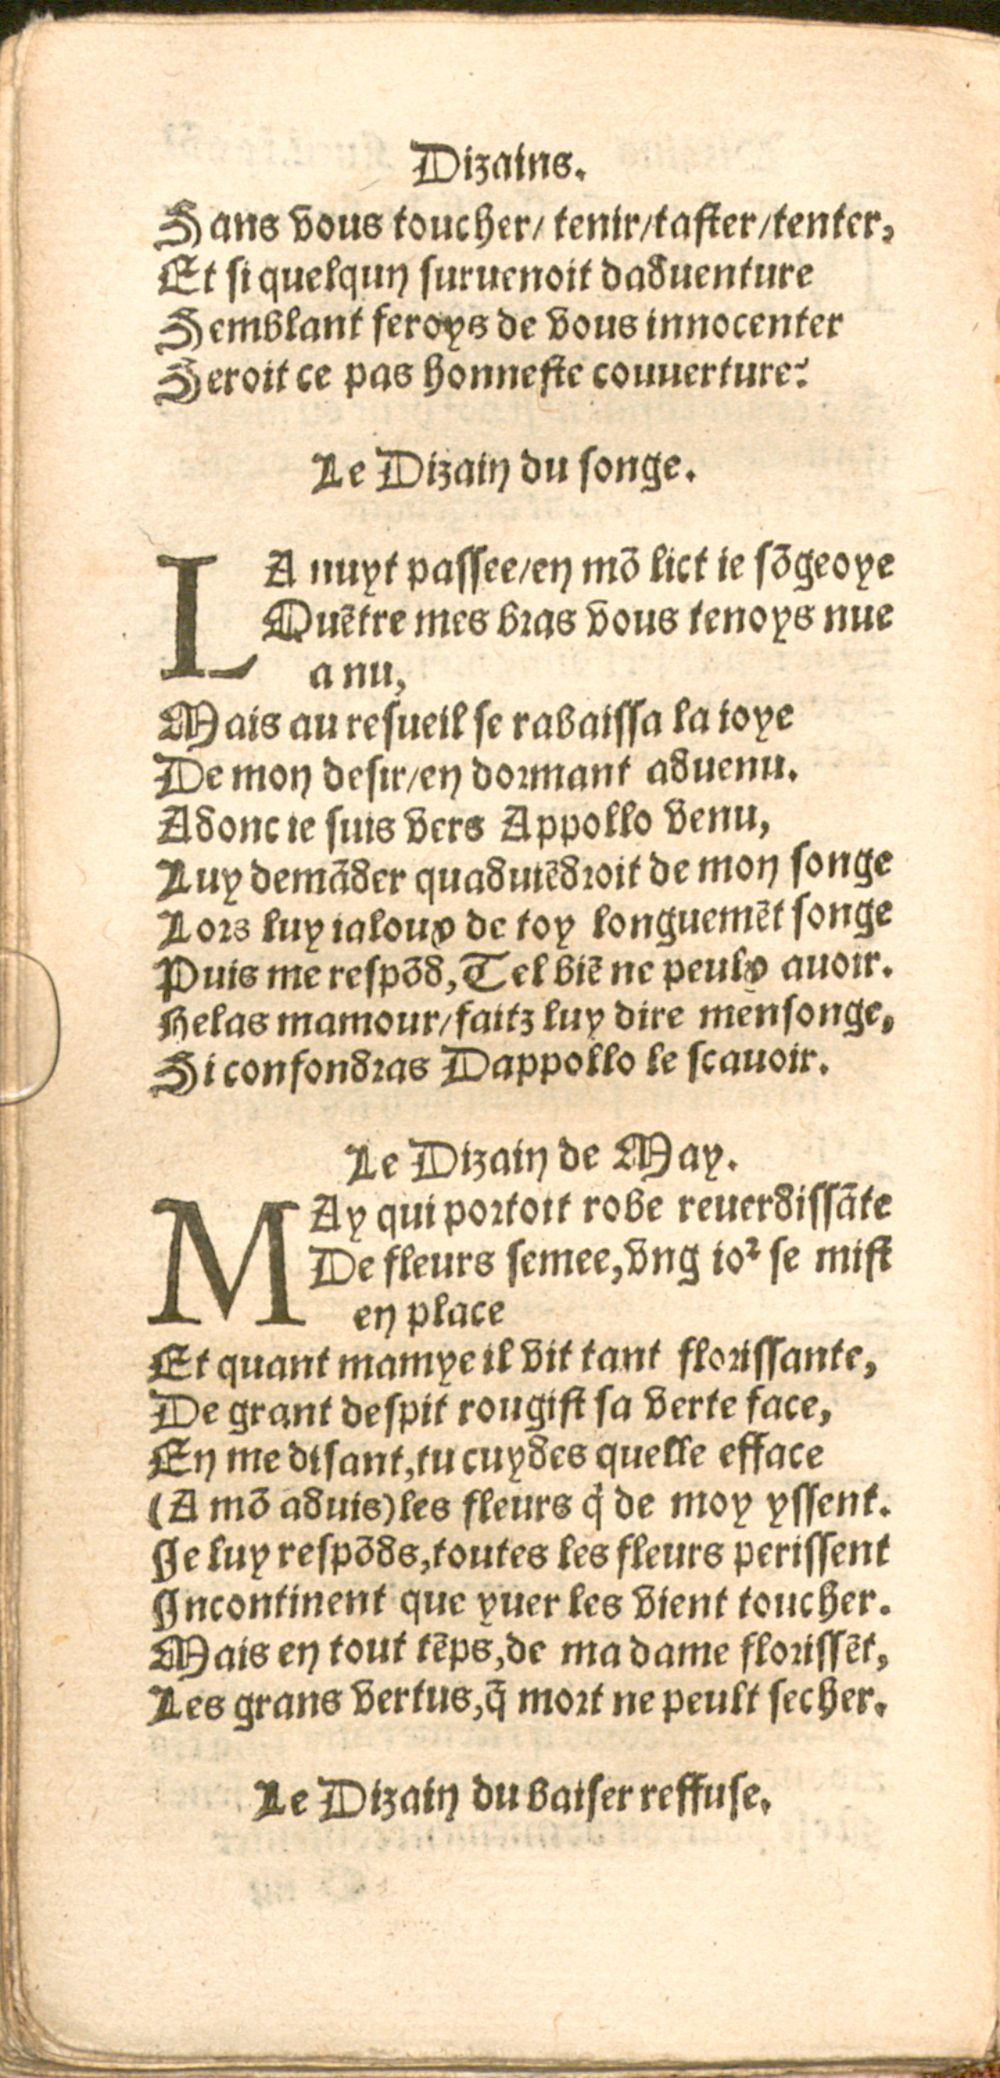 Dizains.
Sans vous toucher/ tenir/taster/tenter,
Et si quelqun suruenoit daduenture
Semblant feroys de vous innocenter
Seroit ce pas honneste couuerture?
Le Dizain du songe.
LA nuyt passee/en mõ lict ie sõgeoye
Quẽtre mes bras vous tenoys nue
a nu,
Mais au resueil se rabaissa la ioye
De mon desir/en dormant aduenu.
Adonc ie suis vers Appollo venu,
Luy demãder quaduiẽdroit de mon songe
Lors luy ialoux de toy longuemẽt songe
Puis me respõd, Tel biẽ ne peulx auoir.
Helas mamour/faitz luy dire mensonge,
Si confondras Dappollo le scauoir.
Le Dizain de May.
MAy qui portoit robe reuerdissãte
De fleurs semee, vng ioꝛ se mist
en place
Et quant mamye il vit tant florissante,
De grant despit rougist sa verte face,
En me disant, tu cuydes quelle efface
(A mõ aduis) les fleurs q̃ de moy yssent.
Je luy respõds, toutes les fleurs perissent
Incontinent que yuer les vient toucher.
Mais en tout tẽps, de ma dame florissẽt,
Les grans vertus, q̃ mort ne peult secher.
Le Dizain du baiser reffuse.